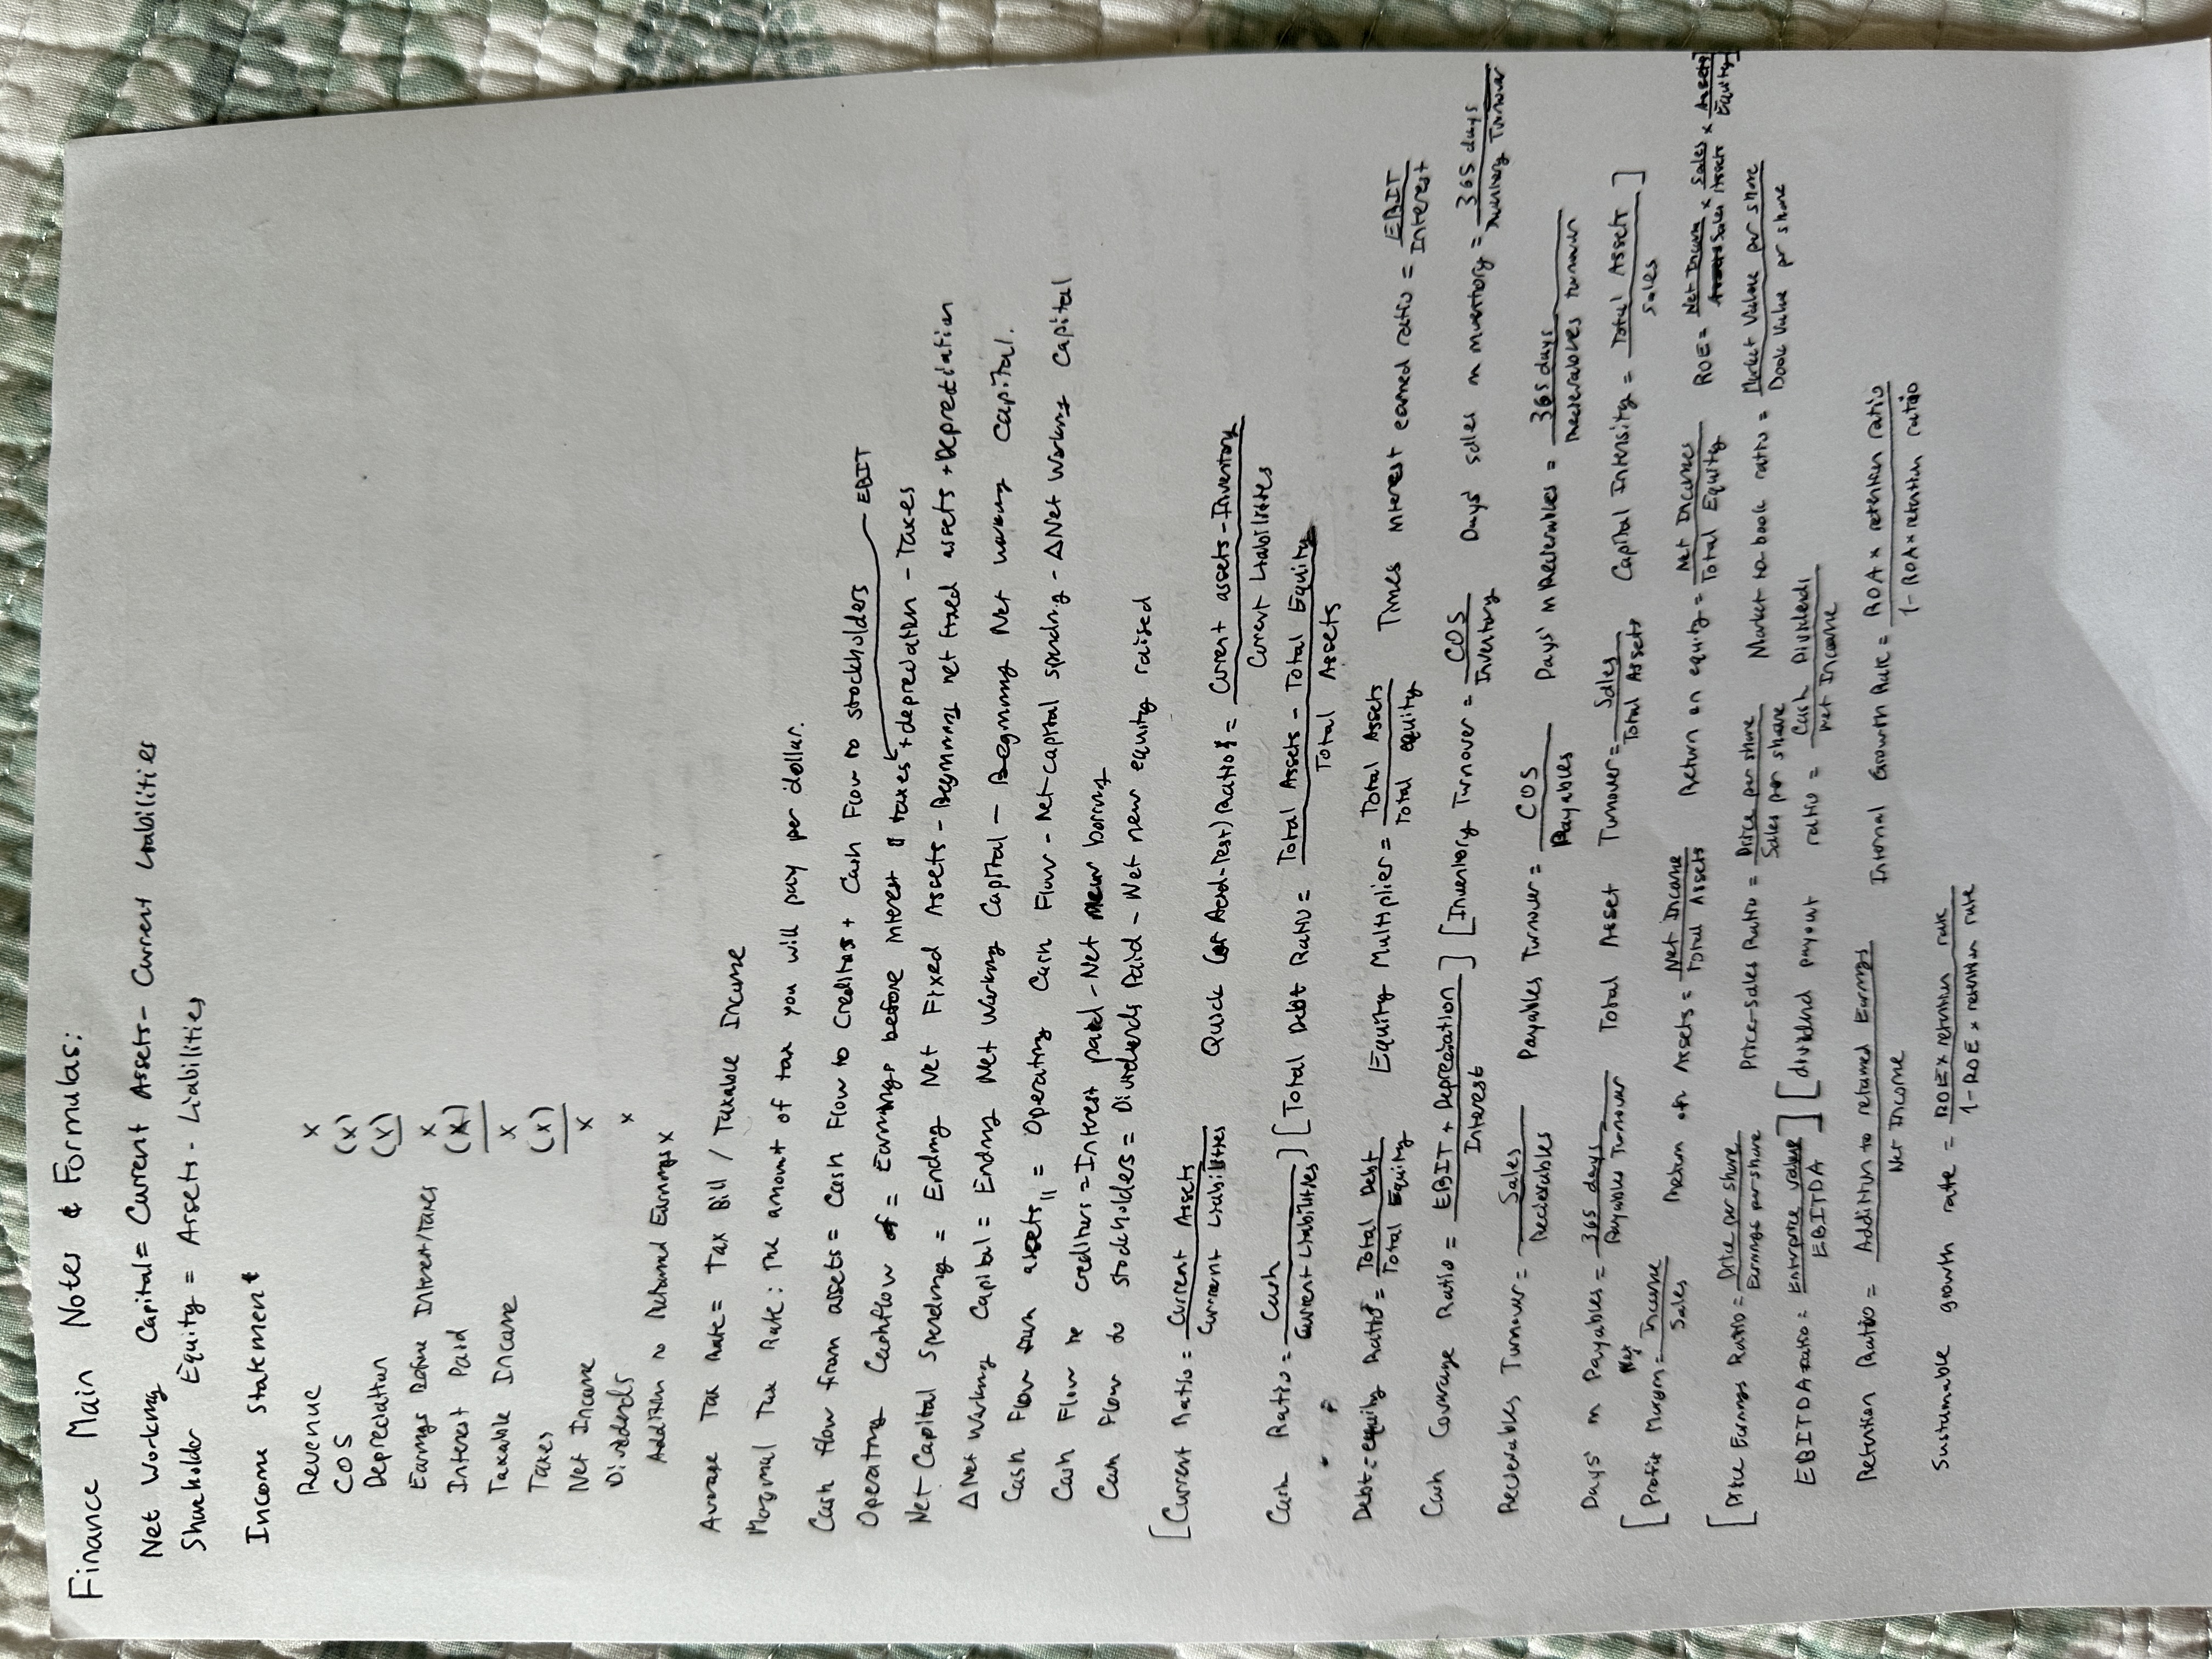 Finance Main Notes & Formulas:
Net Working Capital = Current Assets - Current Liabilities
Shareholder Equity = Assets - Liabilities
Income Statement
Revenue x
COS (x)
Depreciation (x)
Earnings Before Interest/Taxes x
Interest Paid (x)
Taxable Income x
Taxes (x)
Net Income x
Dividends x
Addition to Retained Earnings x
Average Tax Rate = Tax Bill / Taxable Income
Marginal Tax Rate: The amount of tax you will pay per dollar.
Cash flow from assets = Cash Flow to Creditors + Cash Flow to stockholders
EBIT
Operating Cashflow = Earnings before interest & taxes + depreciation - Taxes
Net Capital Spending = Ending Net Fixed Assets - Beginning net fixed assets + Depreciation
Δ Net Working Capital = Ending Net Working Capital - Beginning Net working capital.
Cash Flow from assets " = Operating Cash Flow - Net capital spending - Δ Net Working Capital
Cash Flow to creditors = Interest paid - Net new boring
Cash Flow to stockholders = Dividends Paid - Net new equity raised
[Current Ratio = Current Assets / Current Liabilities Quick (or Acid-Test) Ratio = Current assets - Inventory / Current Liabilities
Cash Ratio = Cash / Current Liabilities] [Total Debt Ratio = Total Assets - Total Equity / Total Assets
Debt-equity Ratio = Total Debt / Total Equity Equity Multiplier = Total Assets / Total equity Times interest earned ratio = EBIT / Interest
Cash Coverage Ratio = EBIT + Depreciation / Interest] [Inventory Turnover = COS / Inventory Days' sales in inventory = 365 days / Inventory Turnover
Recievables Turnover = Sales / Recievables Payables Turnover = COS / Payables Days' in Recievables = 365 days / Recievables turnover
Days' in Payables = 365 days / Payables Turnover Total Asset Turnover = Sales / Total Assets Capital Intensity = Total Assets / Sales]
[Profit Margin = Net Income / Sales Return on Assets = Net Income / Total Assets Return on equity = Net Incomes / Total Equity ROE = Net Income / Sales × Sales / Assets × Assets / Equity]
[Price Earnings Ratio = Price per share / Earnings per share Price-sales Ratio = Price per share / Sales per share Market to book ratio = Market Value per share / Book Value per share
EBITDA ratio = Enterprice value / EBITDA] [dividend payout ratio = Cash Dividends / Net Income
Retention Ratio = Addition to retained Earnings / Net Income Internal Growth Rate = ROA × retention ratio / 1 - ROA × retention ratio
Sustainable growth rate = ROE × retention rate / 1 - ROE × retention rate